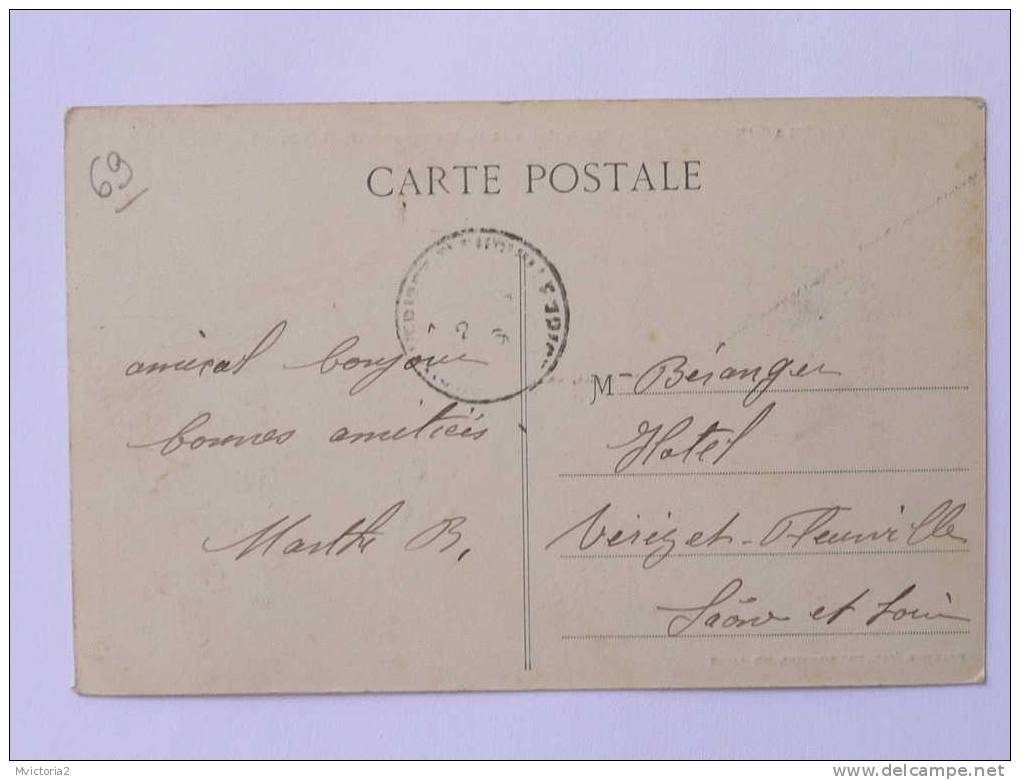 69
CARTE POSTALE
amical bonjour
bonnes amitiés
Marthe B.
M Béranger
Hotel
Vérizet-Fleurville
Saône et Loire
Mvictoria2
delcampe.net